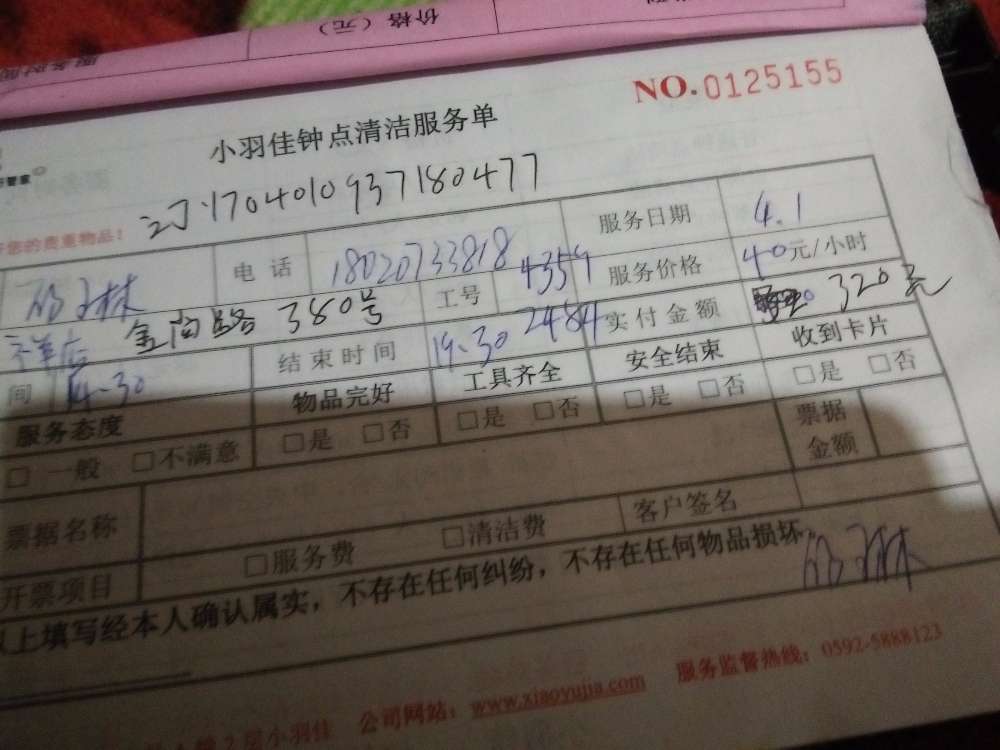 价格（元）
NO.0125155
小羽佳钟点清洁服务单
订:170401093718​0477
您的贵重物品！
电话 18020733818 工号 4359 服务日期 4.1
服务价格 40元/小时
金尚路 380号
间 14-30 结束时间 19-30 2484 实付金额 320元
服务态度 物品完好 工具齐全 安全结束 收到卡片
□ 一般 □不满意 □是 □否 □是 □否 □是 □否 □是 □否
票据名称 票据金额
开票项目 □服务费 □清洁费 客户签名
以上填写经本人确认属实，不存在任何纠纷，不存在任何物品损坏
2层小羽佳 公司网站：www.xiaoyujia.com 服务监督热线：0592-5888123